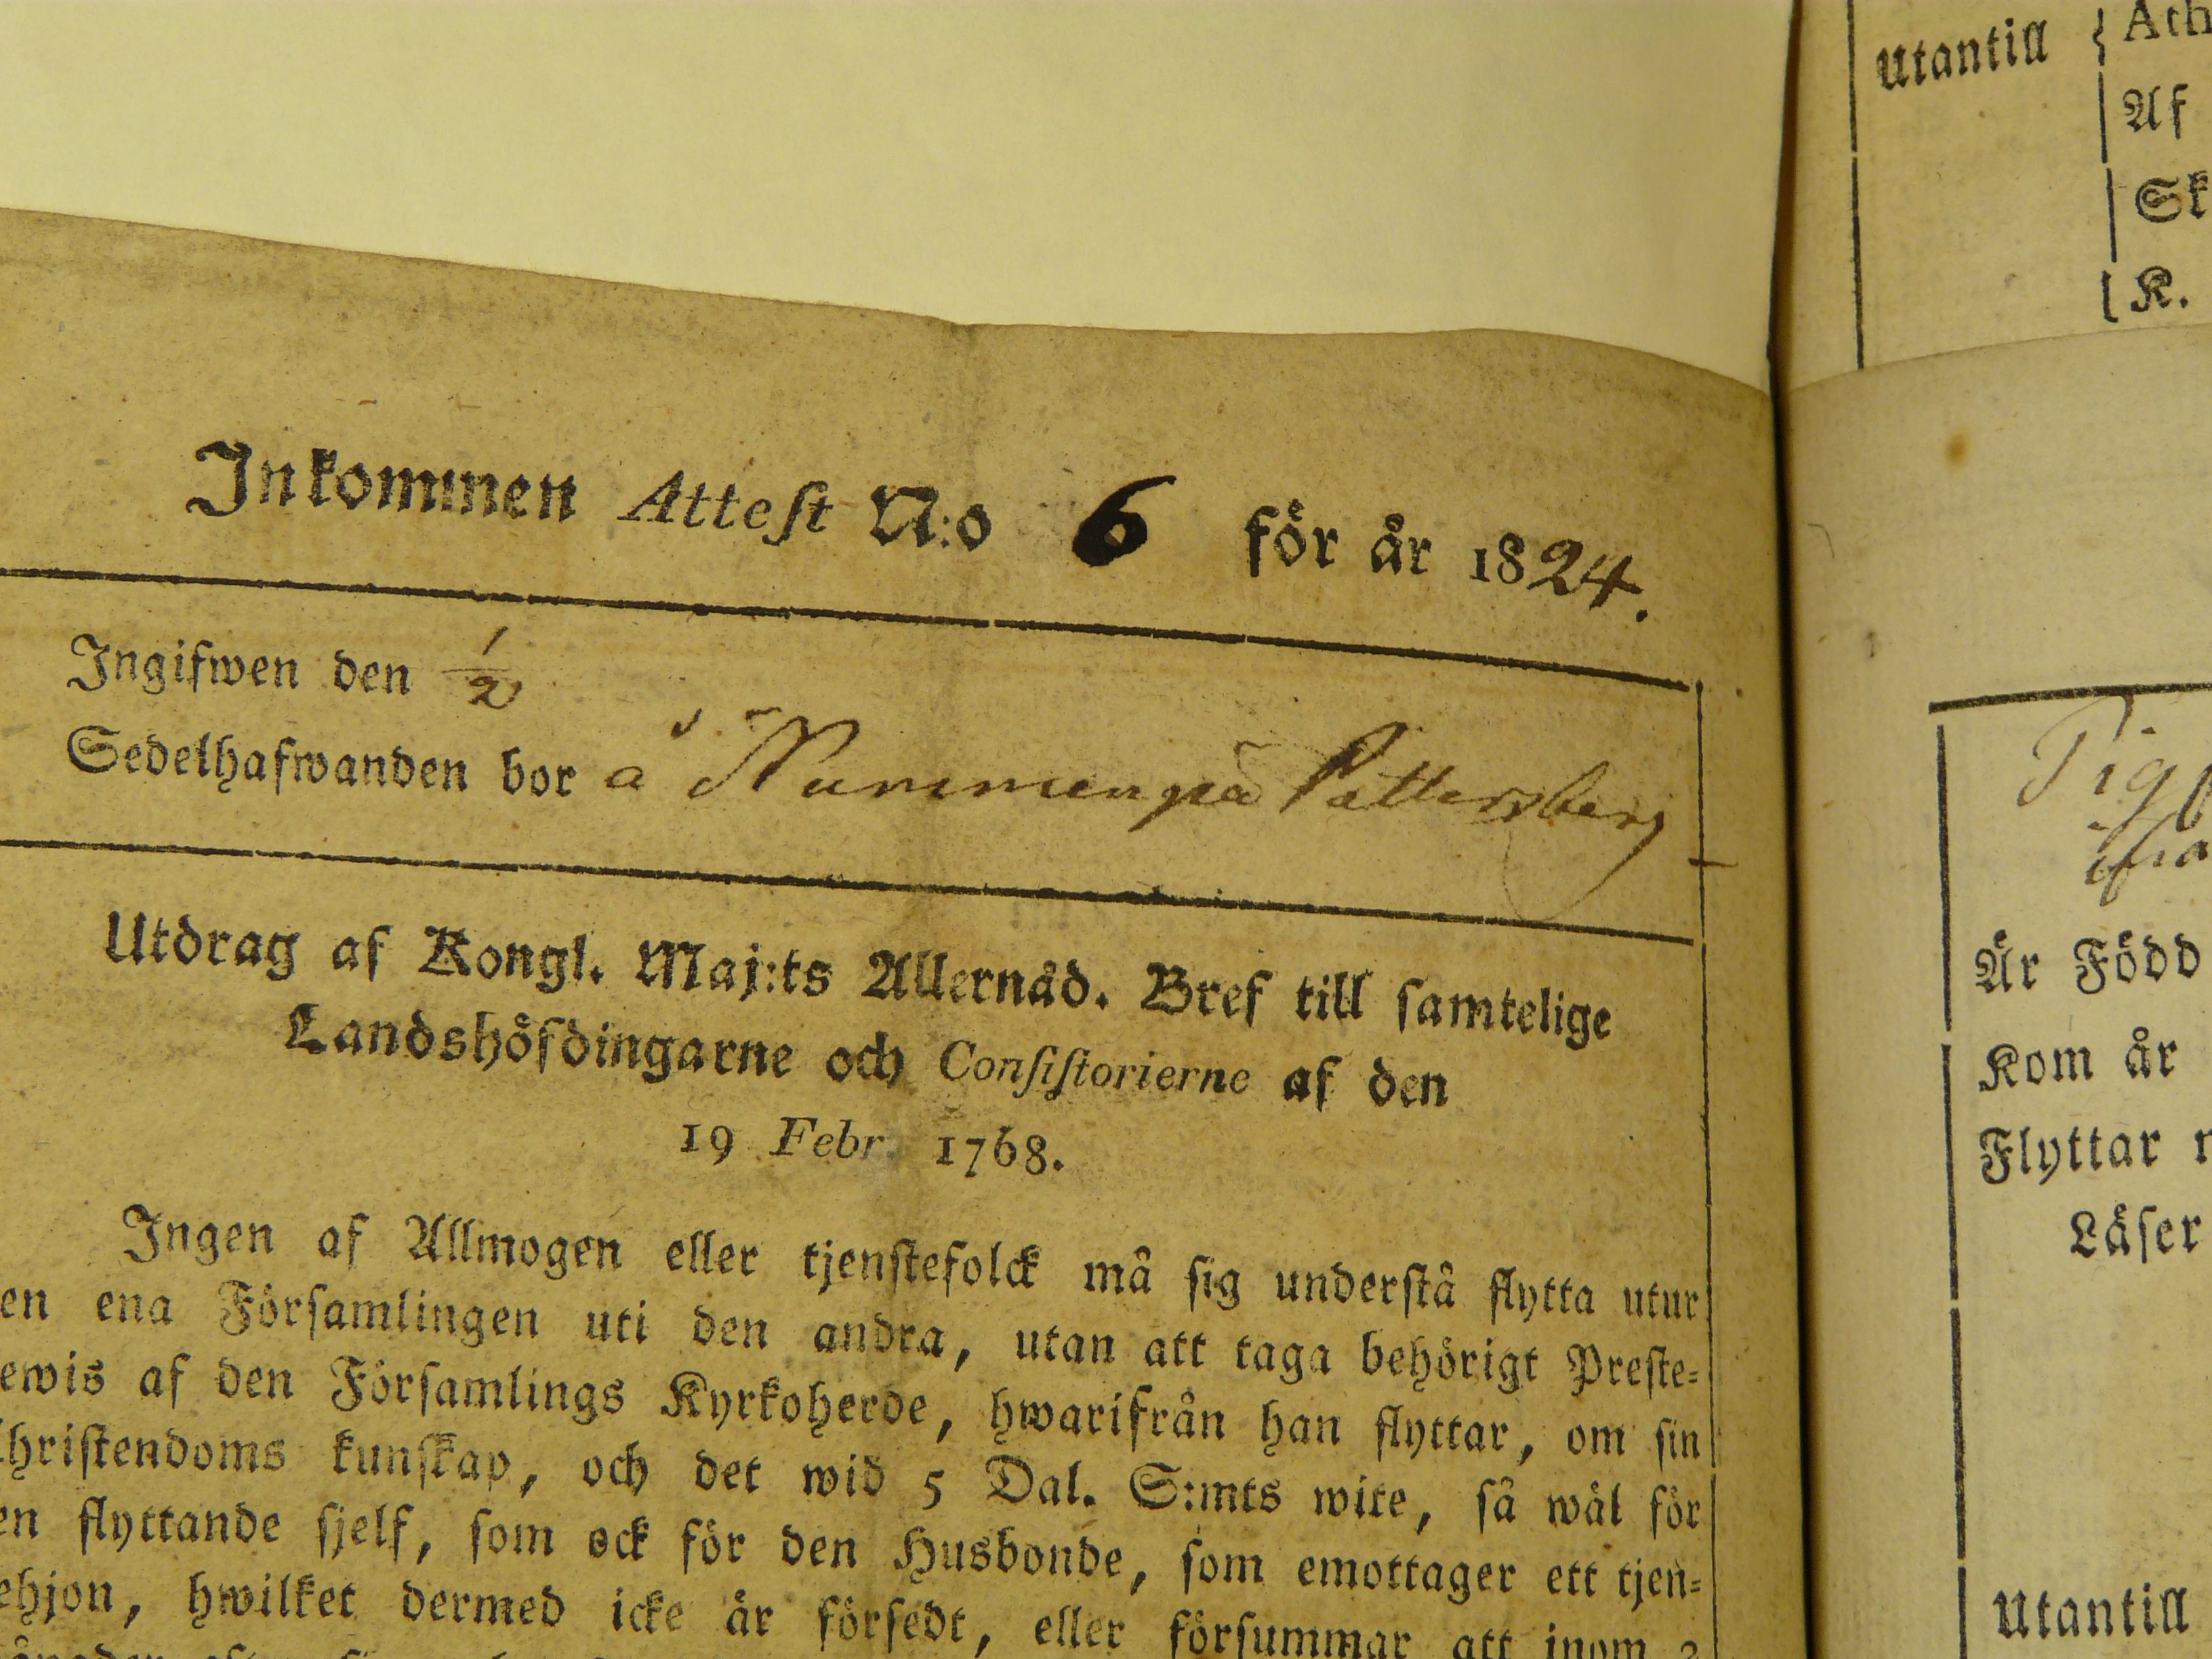 Inkommen Attest N:o 6 för år 1824.
Ingifwen den 1/2
Sedelhafwanden bor å
Utdrag af Kongl. Maj:ts Allernåd. Bref till samtelige
Landshöfdingarne och Consistorierne af den
19 Febr. 1768.
Ingen af Allmogen eller tjenstefolck må sig understå flytta utur
en ena Församlingen uti den andra, utan att taga behörigt Preste-
ewis af den Församlings Kyrkoherde, hwarifrån han flyttar, om sin
hristendoms kunskap, och det wid 5 Dal. S:mts wite, så wäl för
en flyttande sjelf, som ock för den Husbonde, som emottager ett tjen-
ehjon, hwilket dermed icke är försedt, eller försummar att inom
Utantill
Af
Sk
K.
Pig
ifrå
Är Född
Kom år
Flyttar
Läser
Utantill